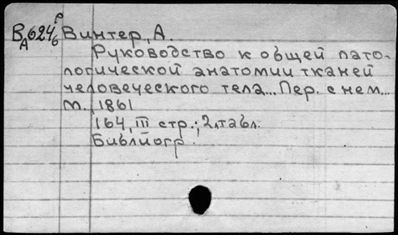 ВА624 Винтер, А.
Руководство к общей пато-
логической анатомии тканей
человеческого тела... Пер. с нем...
М. 1861
164, III стр.; 2 л. табл.
Библиогр.